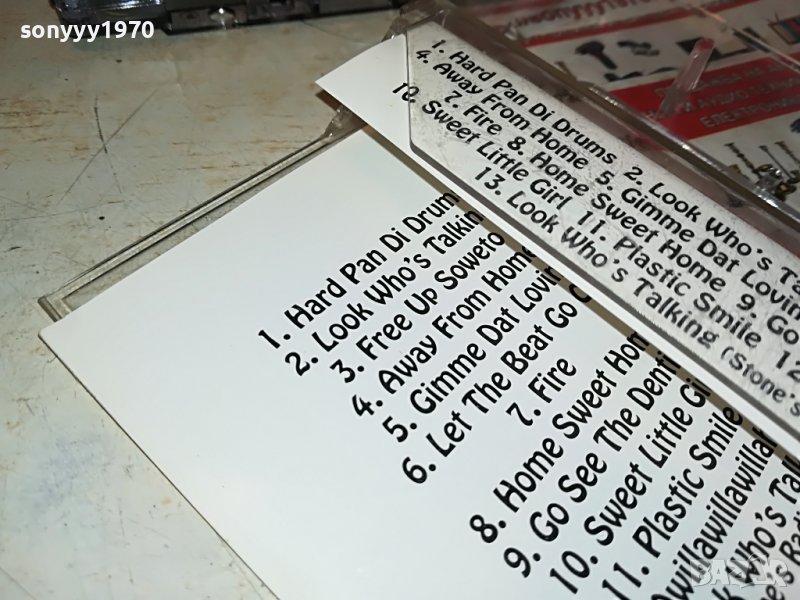 sonyyy1970
1. Hard Pan Di Drums 2. Look Who's
4. Away From Home 5. Gimme Dat Lovin
7. Fire 8. Home Sweet Home 9. Go
10. Sweet Little Girl 11. Plastic Smile 12
13. Look Who's Talking (Stone's
1. Hard Pan Di Drum
2. Look Who's Talkin
3. Free Up Soweto
4. Away From Home
5. Gimme Dat Lovin
6. Let The Beat Go
7. Fire
8. Home Sweet Hom
9. Go See The Denti
10. Sweet Little Gi
11. Plastic Smile
Who's Tal
БАЗАР